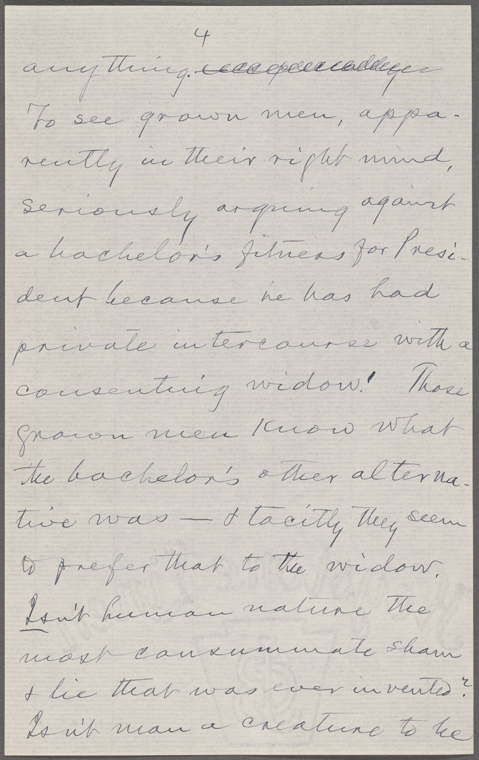 4
anything.
To see grown men, appa-
rently in their right mind,
seriously arguing against
a bachelor's fitness for Presi-
dent because he has had
private intercourse with a
consenting widow! Those
grown men know what
the bachelor's other alterna-
tive was — & tacitly they seem
to prefer that to the widow.
Isn't human nature the
most consummate sham
& lie that was ever invented?
Isn't man a creature to be